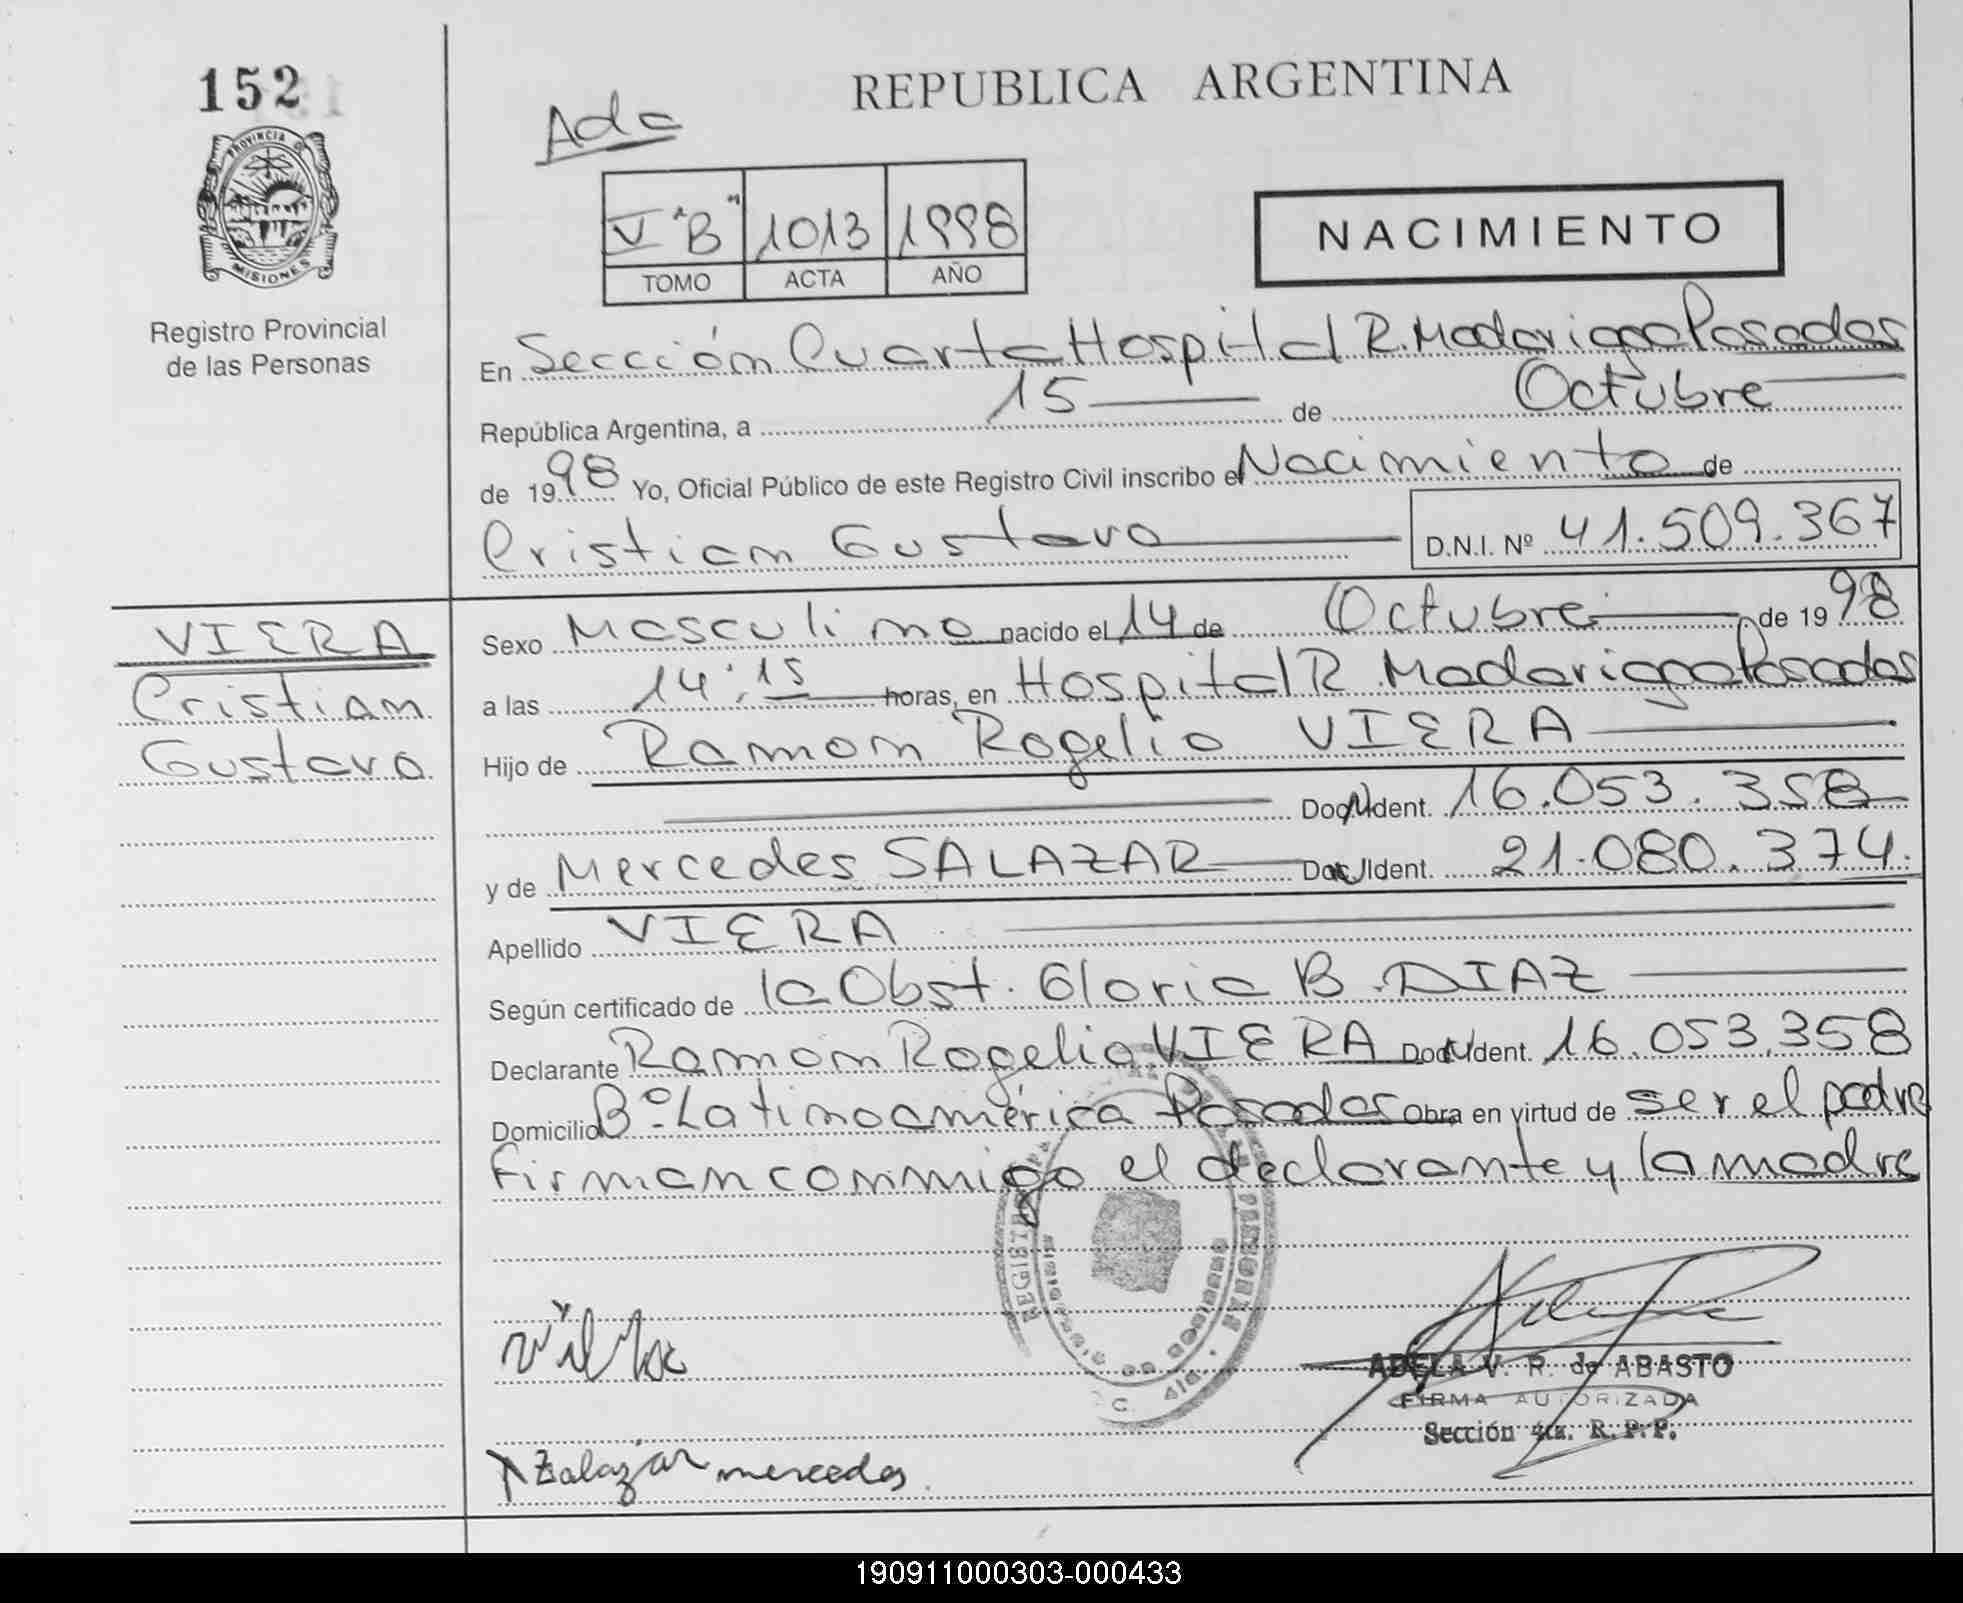 152
REPUBLICA ARGENTINA
Ada
PROVINCIA D
MISIONES
V "B" 1013 1998
TOMO ACTA AÑO
NACIMIENTO
Registro Provincial
de las Personas
En Sección Cuarta Hospital R. Madariaga Posadas
República Argentina, a 15 de Octubre
de 1998 Yo, Oficial Público de este Registro Civil inscribo el Nacimiento de
Cristian Gustavo D.N.I. Nº 41.509.367
VIERA
Cristian
Gustavo
Sexo Masculino nacido el 14 de Octubre de 1998
a las 14:15 horas, en Hospital R. Madariaga Posadas
Hijo de Ramon Rogelio VIERA
Doc. Ident. 16.053.358
y de Mercedes SALAZAR Doc. Ident. 21.080.374.
Apellido VIERA
Según certificado de la Obst. Gloria B. DIAZ
Declarante Ramon Rogelio VIERA Doc. Ident. 16.053.358
Domicilio Bº Latinoamérica Posadas Obra en virtud de ser el padre
Firman conmigo el declarante y la madre
ADELA V. R. de ABASTO
FIRMA AUTORIZADA
Sección 4ta. R. P. P.
Zalazar mercedes.
190911000303-000433